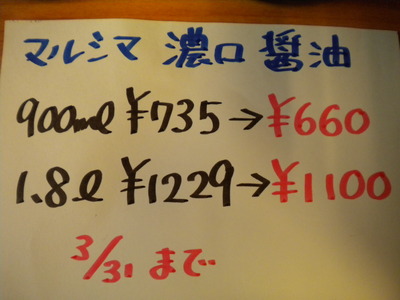 マルシマ 濃口 醤油
900ml ¥735→¥660
1.8l ¥1229→¥1100
3/31 まで